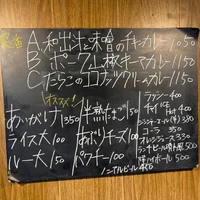 定番
A. 和出汁と味噌のチキンカレー 1050
B. ポーク山椒キーマカレー 1150
C. たらこのココナッツクリームカレー 1150
オススメ!
あいがけ 1350
ライス大 100
ルー大 150
半熟たまご 150
あぶりチーズ 100
パクチー 100
ラッシー 400
チャイ
コーラ 350
オレンジジュース 330
ランチビール
ハイボール 500
ノンアルビール